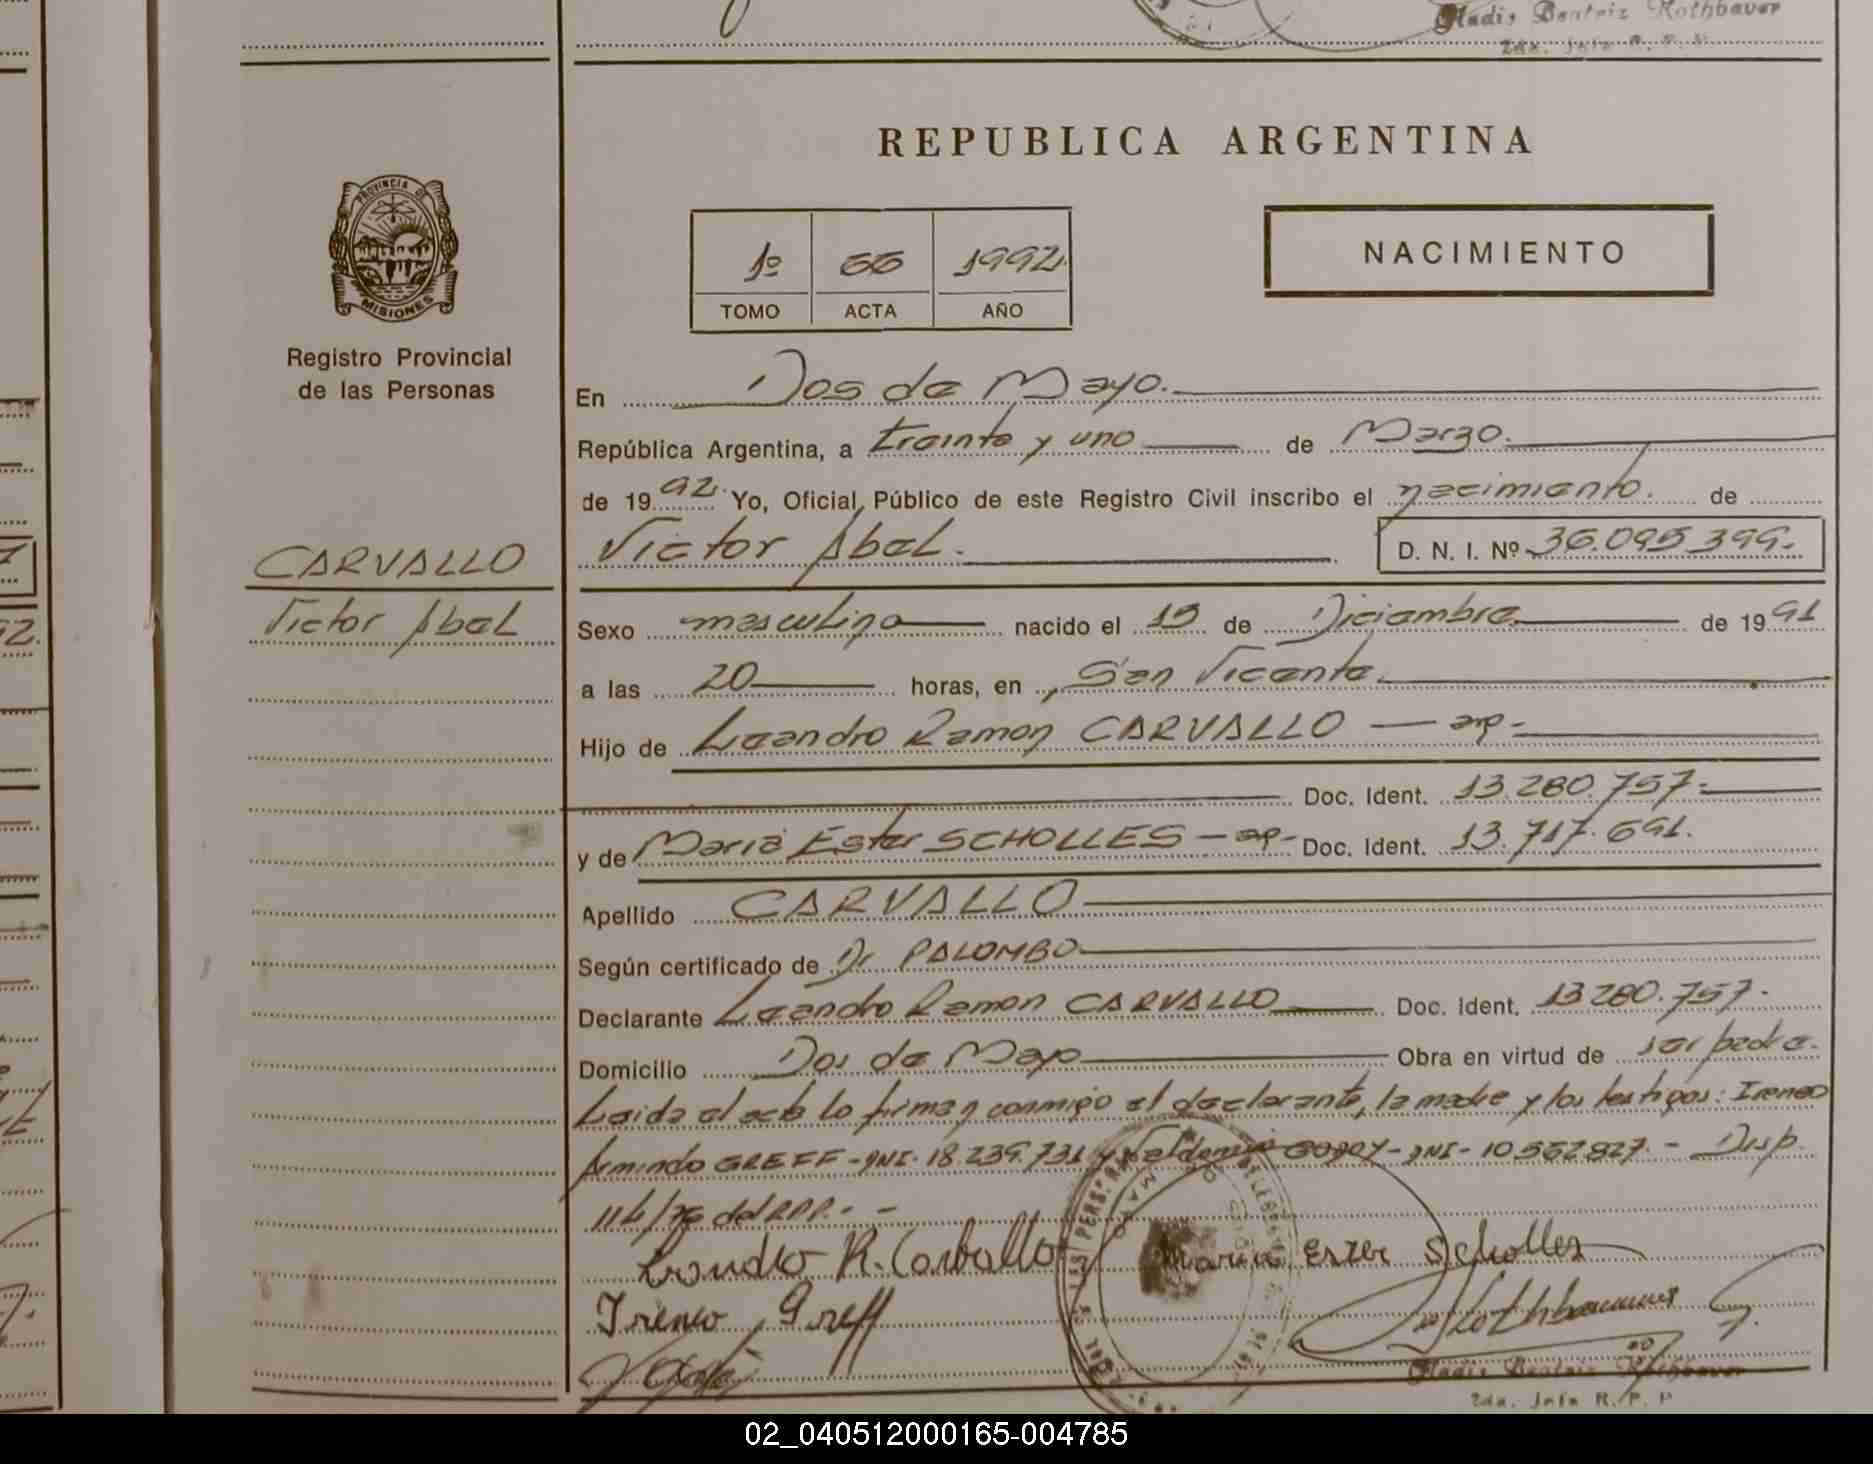 Gladis Beatriz Rothbauer
2da. Jefe R. P. P.
REPUBLICA ARGENTINA
PROVINCIA DE
MISIONES
Registro Provincial
de las Personas
1º 66 1992
TOMO ACTA AÑO
NACIMIENTO
En Dos de Mayo.
República Argentina, a treinta y uno de Marzo.
de 1992. Yo, Oficial Público de este Registro Civil inscribo el nacimiento. de
CARVALLO
Victor Abel
Victor Abel. D. N. I. Nº 36.095.399.
Sexo masculino nacido el 15 de Diciembre de 1991
a las 20 horas, en San Vicente.
Hijo de Leandro Ramon CARVALLO — ap-
Doc. Ident. 13.280.757.
y de Maria Ester SCHOLLES - ap- Doc. Ident. 13.717.691.
Apellido CARVALLO
Según certificado de Dr PALOMBO
Declarante Leandro Ramon CARVALLO Doc. Ident. 13280.757.
Domicilio Dos de Mayo Obra en virtud de ser padre.
Leida el acta lo firman conmigo el declarante, la madre y los testigos: Ireneo
Armindo GREFF - DNI. 18.239.731 y GODOY - DNI - 10.562827. - Disp.
114/76 del RPP. - -
Leandro R. Carballo Maria Ester Scholles
Ireneo Greff
Gladis Beatriz Rothbauer
2da. Jefe R. P. P
02_040512000165-004785